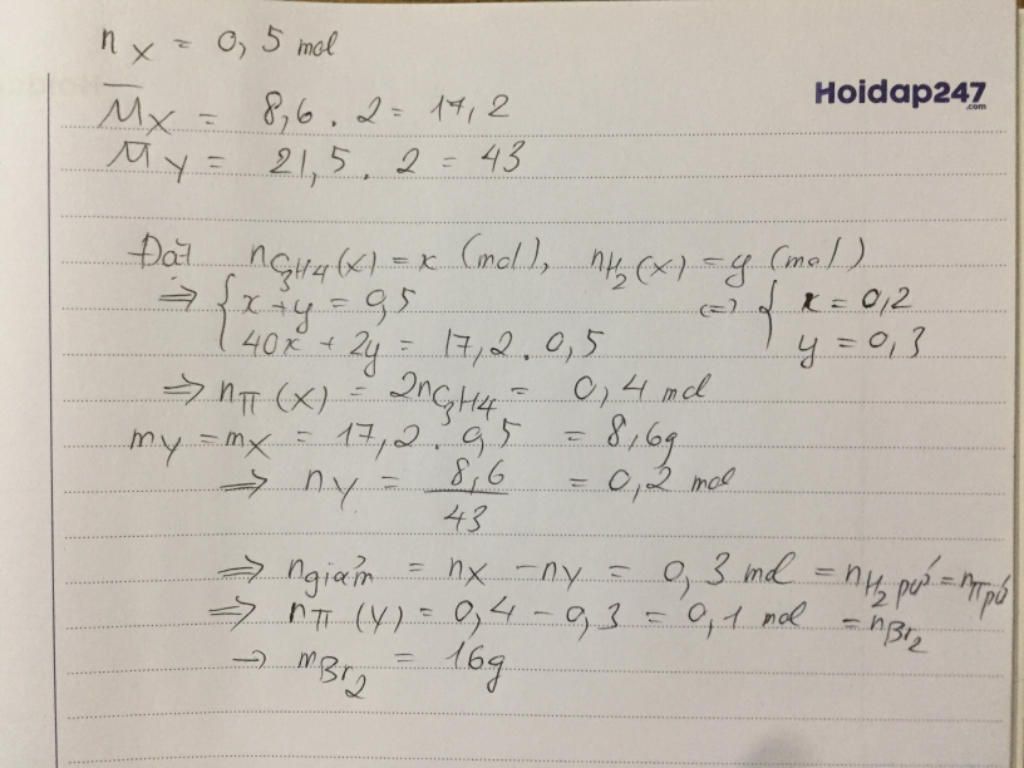 nX = 0,5 mol
Hoidap247
.com
M̅X = 8,6 . 2 = 17,2
M̅Y = 21,5 . 2 = 43
Đặt nC3H4 (X) = x (mol), nH2 (X) = y (mol)
⇒ { x + y = 0,5 (=) { x = 0,2
40x + 2y = 17,2 . 0,5 y = 0,3
⇒ nπ (X) = 2nC3H4 = 0,4 mol
mY = mX = 17,2 . 0,5 = 8,6g
⇒ nY = 8,6 / 43 = 0,2 mol
⇒ ngiảm = nX - nY = 0,3 mol = nH2 pứ = nπ pứ
⇒ nπ (Y) = 0,4 - 0,3 = 0,1 mol = nBr2
→ mBr2 = 16g